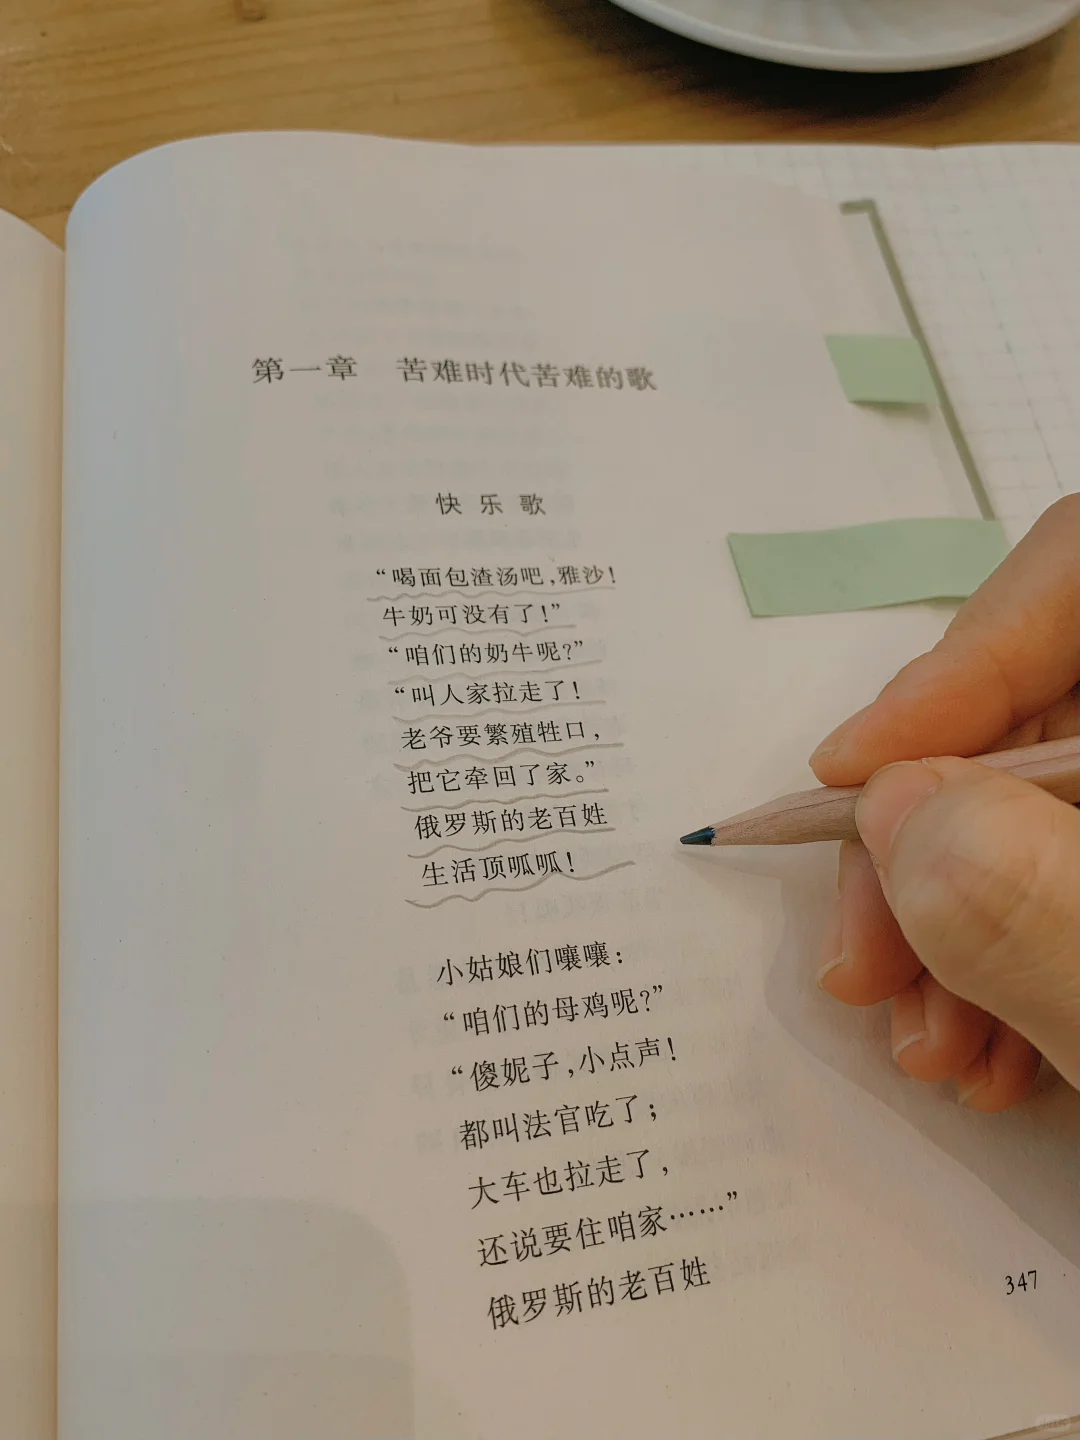 第一章 苦难时代苦难的歌
快乐歌
“喝面包渣汤吧，雅沙！
牛奶可没有了！”
“咱们的奶牛呢？”
“叫人家拉走了！
老爷要繁殖牲口，
把它牵回了家。”
俄罗斯的老百姓
生活顶呱呱！
小姑娘们嚷嚷：
“咱们的母鸡呢？”
“傻妮子，小点声！
都叫法官吃了；
大车也拉走了，
还说要住咱家……”
俄罗斯的老百姓
347